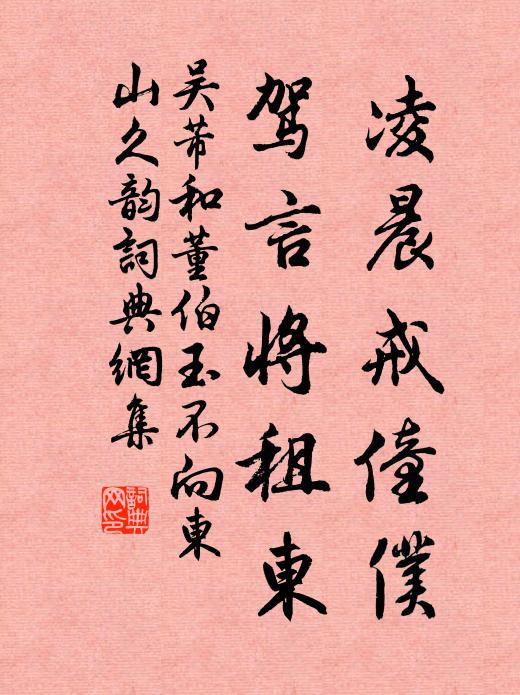 凌晨戒僮僕
驾言将租東
吴芾和董伯玉不向東
山久韵詞典網集
詞典
网印